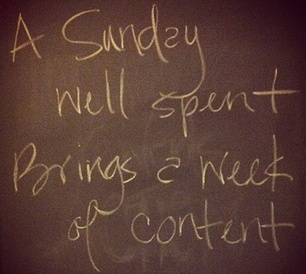 A Sunday
well spent
Brings a week
of content